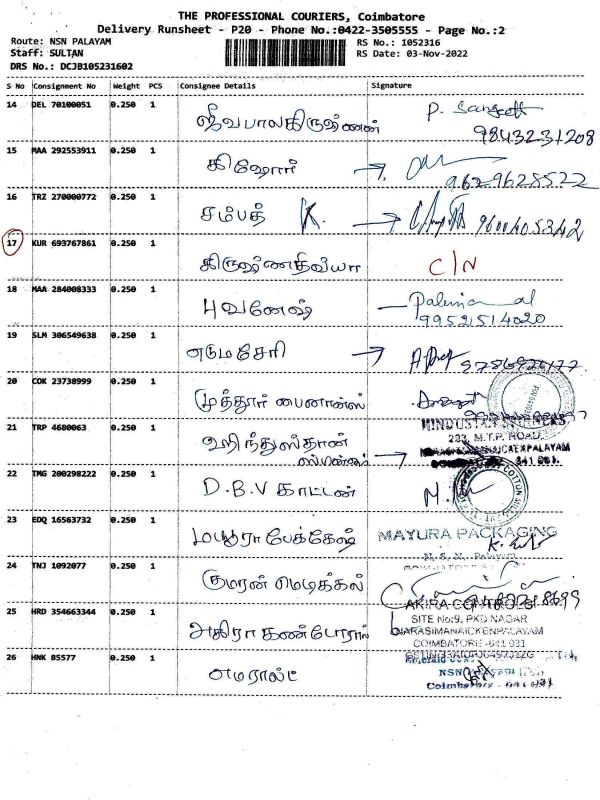 THE PROFESSIONAL COURIERS, Coimbatore
Delivery Runsheet - P20 - Phone No.:0422-3505555 - Page No.:2
Route: NSN PALAYAM
Staff: SULTAN
DRS No.: DCJB105231602
RS No.: 1052316
RS Date: 03-Nov-2022
S No Consignment No Weight PCS Consignee Details Signature
14 DEL 70100051 0.250 1 ஜீவபாலகிருஷ்ணன் P. Sangeeth
9843231208
15 MAA 292553911 0.250 1 கிஷோர்
9629628522
16 TRZ 270000772 0.250 1 சம்பத் K. 9600405342
17 KUR 693767861 0.250 1 கிருஷ்ணதிவ்யா C/N
18 MAA 284008333 0.250 1 புவனேஷ்
9952514020
19 SLM 306549638 0.250 1
20 COK 23738999 0.250 1 முத்தூர் பைனான்ஸ்
21 TRP 4680063 0.250 1 ஹிந்துஸ்தான்
HINDUSTAN
233, M.T.P. ROAD,
641 031.
22 TMG 200298222 0.250 1 D.B.V காட்டன்
COTTON MILLS
23 EDQ 16563732 0.250 1 மயூரா பேக்கேஜ்
MAYURA PACKAGING
24 TNJ 1092077 0.250 1 குமரன் மெடிக்கல்
25 HRD 354663344 0.250 1 அகிரா கண்ட்ரோல்
AKIRA CONTROLS
SITE No:9, PKD NAGAR
NARASIMANAICKENPALAYAM
COIMBATORE -641 031
26 HNK 85577 0.250 1 எமரால்ட்
Coimbatore - 641 031